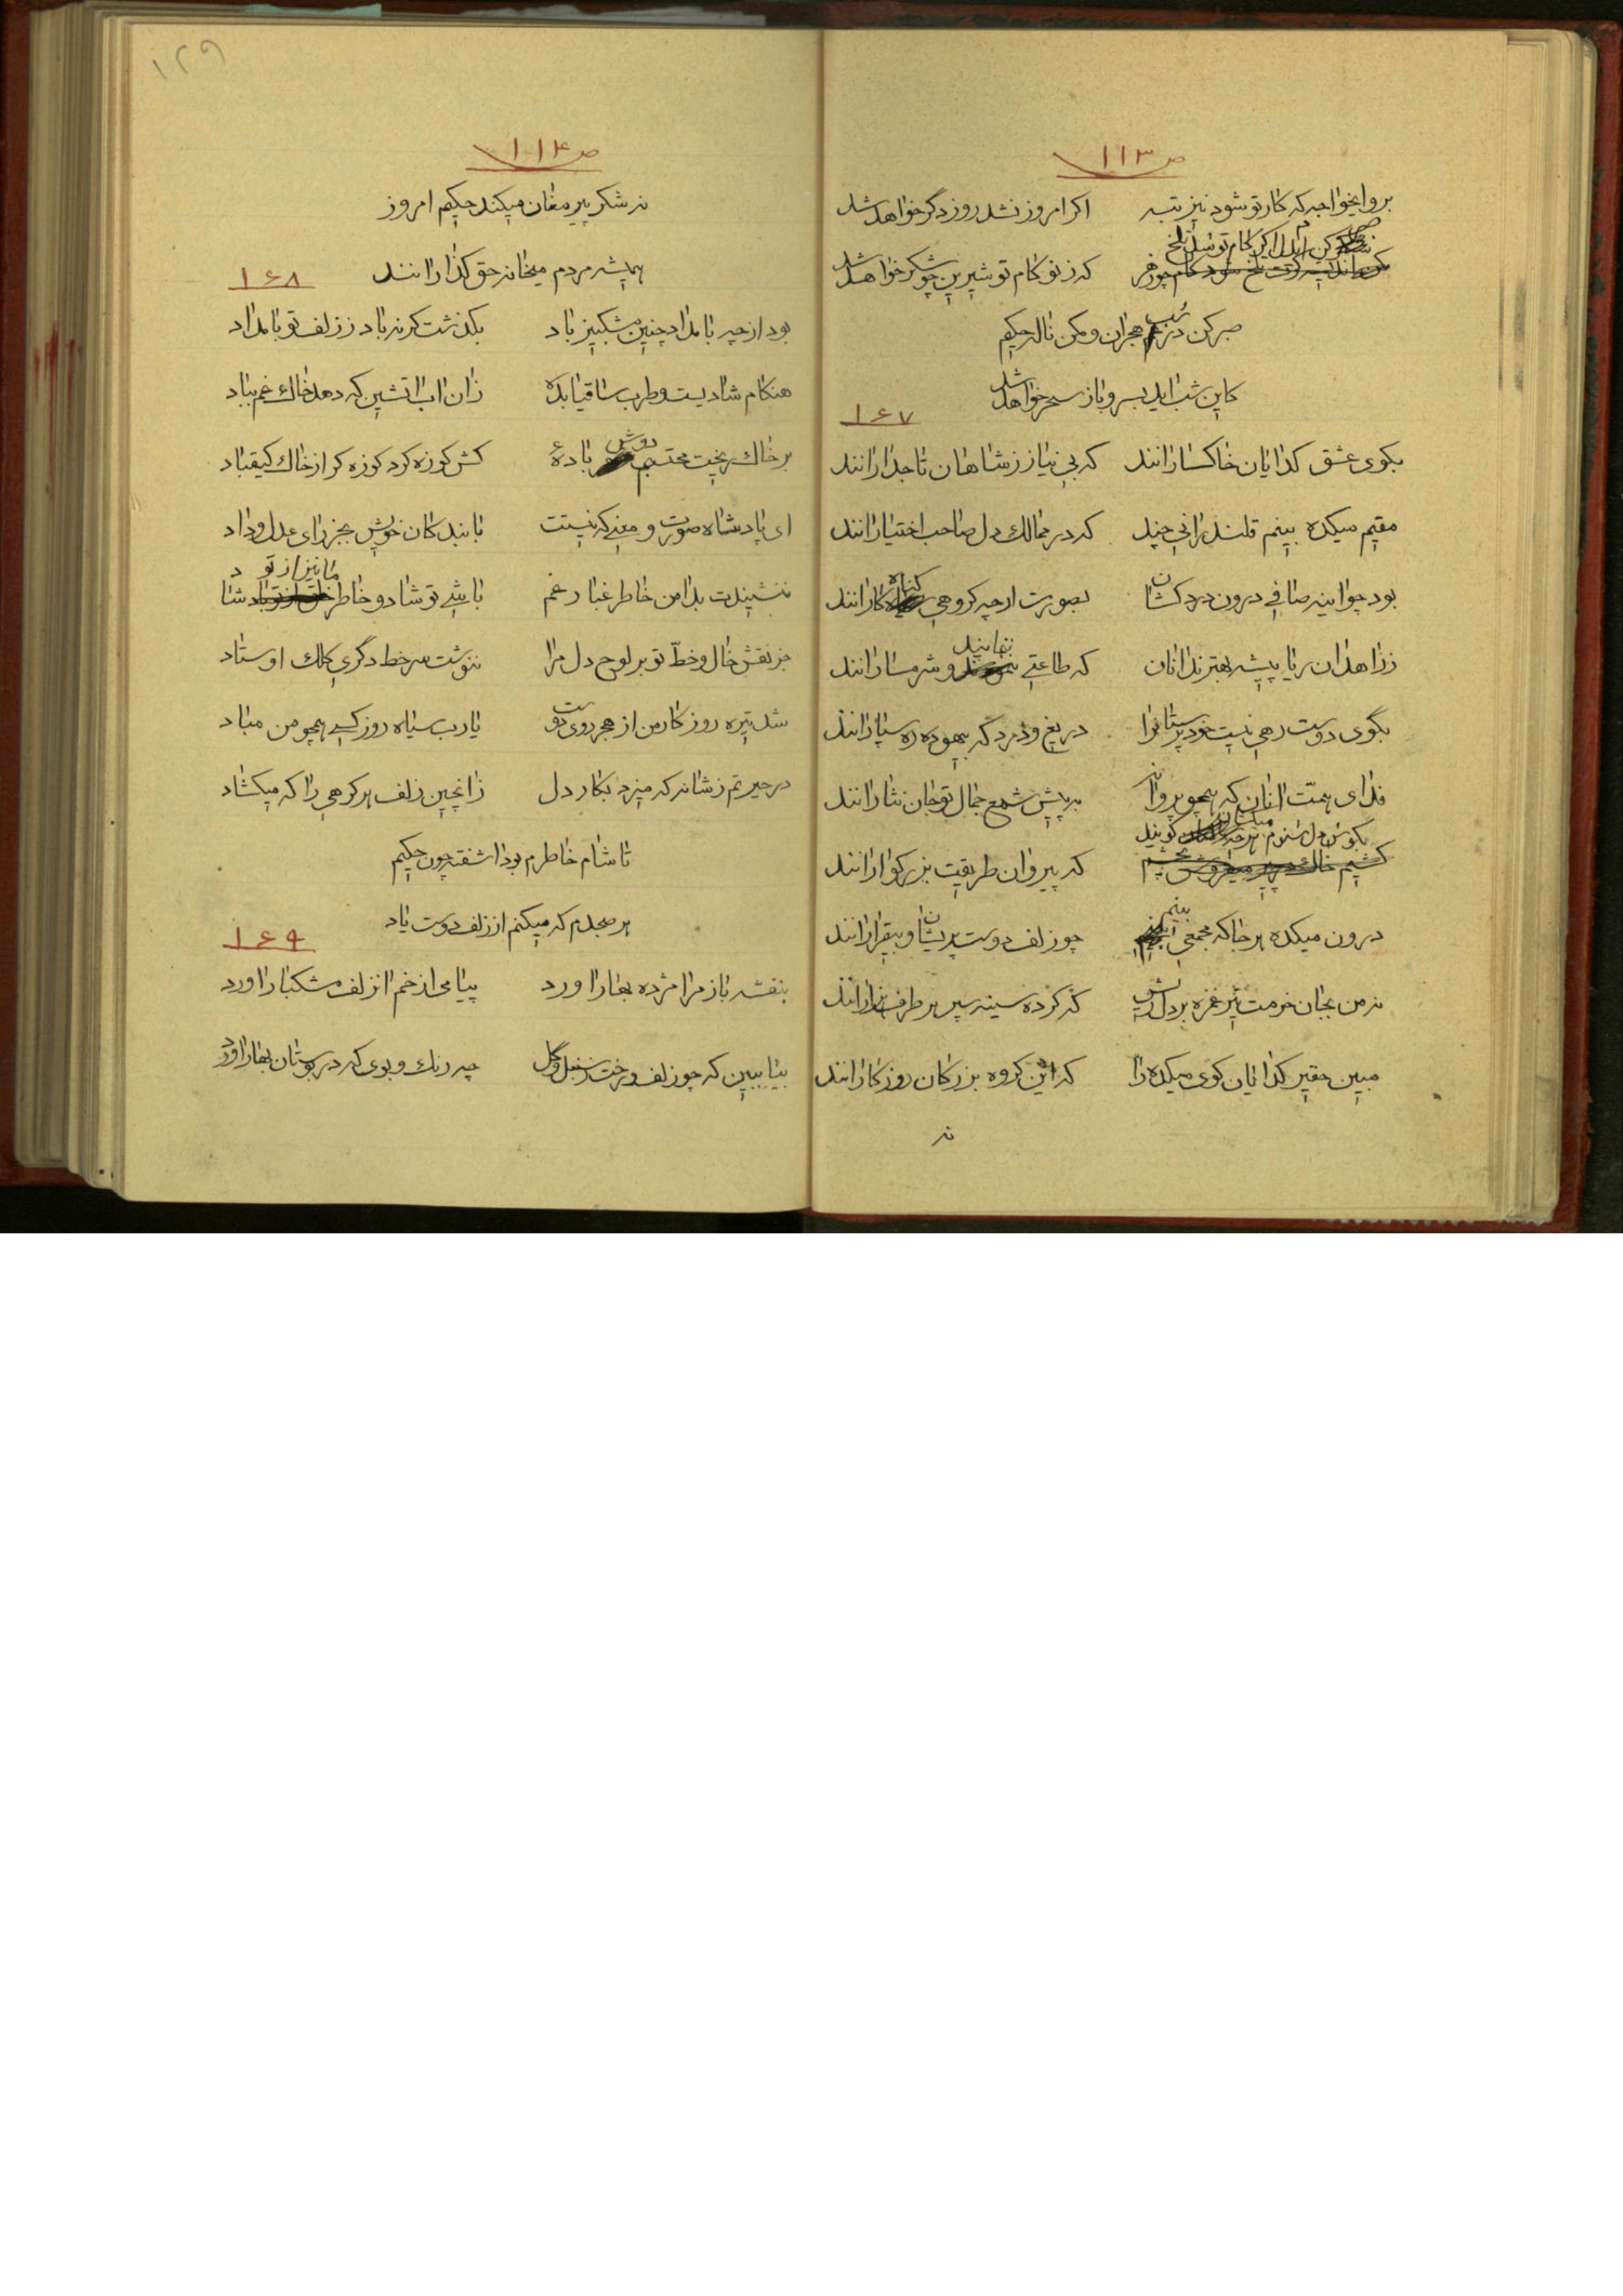 ص ۱۱۳
برو ایخواجه که کار تو شود نیز تبه اکر امروز نشد روز دگر خواهد شد
صبر کن ایدل اکر کام تو شد تلخ
که ز نو کام تو شیرین چو شکر خواهد شد
صبر کن در شب هجران و مکن ناله حکیم
کاین شب اید بسر و باز سحر خواهد شد
۱۶۷
بکوی عشق کدایان خاکسارانند که بی نیاز ز شاهان تاجدارانند
مقیم میکده بینم قلندرانی چند که در ممالک دل صاحب اختیارانند
بود چو اینه صافی درون دردکشان بصورت ارچه کروهی کناه کارانند
ز زاهدان ریا پیشه بهتر ندانان که طاعتی بنمایند و شرمسارانند
بگوی دوست رهی نیست خودپرستانرا دریغ و درد که بیهوده ره سپارانند
فدای همت انان که همچو پروانه به پیش شمع جمال تو جان نثارانند
بکوش دل شنوم هرچه میکشان کویند
که پیروان طریقت بزرکوارانند
درون میکده هر جا که مجمعی بینم چو زلف دوست پریشان و بیقرارانند
نه من بجان خرمت تیر غمزه بر دل ریش که کرده سینه سپر هر طرف هزارانند
مبین حقیر کدایان کوی میکده را که این کروه بزرکان روزکارانند
نه
۱۲۹
ص ۱۱۴
نه شکر پیر مغان میکند حکیم امروز
همیشه مردم میخانه حق کذارانند
۱۶۸
بود از چه بامداد چنین مشکبیز باد بکذشت کر نه باد ز زلف تو بامداد
هنکام شادیست و طرب ساقیا بده زان اب اتشین که دهد خاک غم بباد
بر خاک ریخت محتسب دوش بادهٔ کش کوزه کرد کوزه کر از خاک کیقباد
ای پادشاه صورت و معنی که نیستت با بندکان خویش بجز رای عدل و داد
ننشیندت بدامن خاطر غبار غم باشی تو شاد و خاطر ما نیز از تو شاد
جز نقش خال و خطّ تو بر لوح دل مرا ننوشت سرخط دگری کلک اوستاد
شد تیره روز کار من از هجر روی دوست یارب سیاه روز کسی همچو من مباد
در حیرتم ز شانه که میزد بکار دل زانچین زلف هر کرهی را که میکشاد
تا شام خاطرم بود اشفته چون حکیم
هر صبحدم که میکنم از زلف دوست یاد
۱۶۹
بنفشه باز مرا مژده بهار اورد پیامی از خم انزلف مشکبار اورد
بیا ببین که چو زلف و رخت ز سنبل و گل چه رنک و بوی که در بوستان بهار اورد